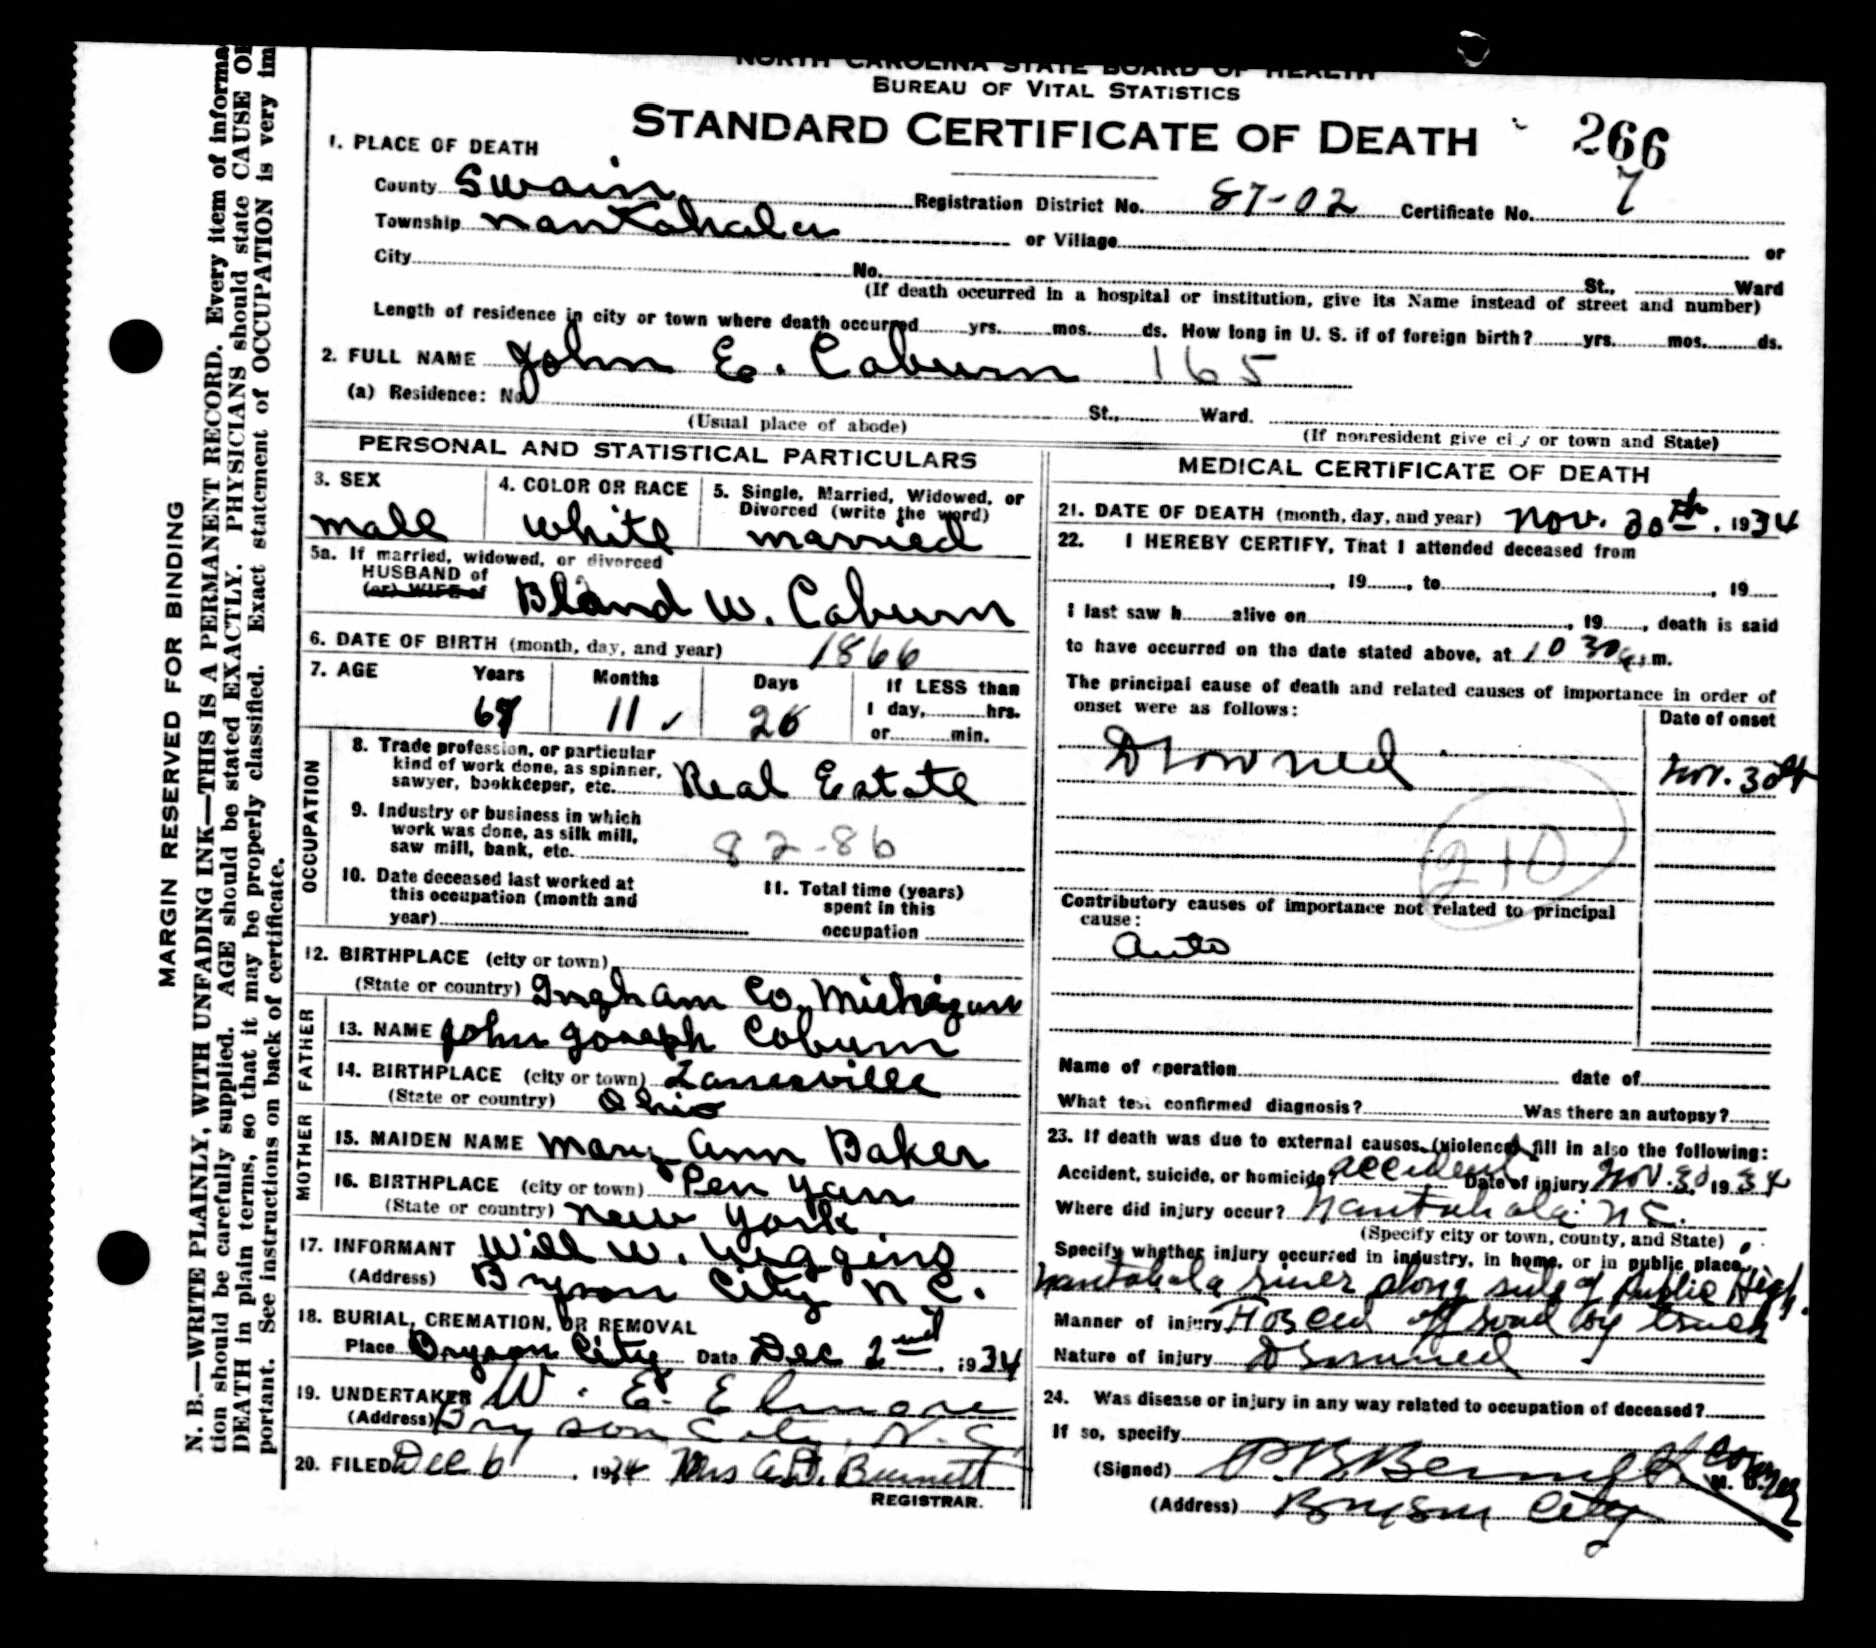 NORTH CAROLINA STATE BOARD OF HEALTH
BUREAU OF VITAL STATISTICS
STANDARD CERTIFICATE OF DEATH 266
1. PLACE OF DEATH
County Swain Registration District No. 87-02 Certificate No. 7
Township Nantahala or Village or
City No. St., Ward
(If death occurred in a hospital or institution, give its Name instead of street and number)
Length of residence in city or town where death occurred yrs. mos. ds. How long in U. S. if of foreign birth? yrs. mos. ds.
2. FULL NAME John E. Coburn 165
(a) Residence: No. St., Ward.
(Usual place of abode) (If nonresident give city or town and State)
PERSONAL AND STATISTICAL PARTICULARS
3. SEX 4. COLOR OR RACE 5. Single, Married, Widowed, or
Divorced (write the word)
male white married
5a. If married, widowed, or divorced
HUSBAND of
(or) WIFE of Bland W. Coburn
6. DATE OF BIRTH (month, day, and year) 1866
7. AGE Years Months Days If LESS than
1 day, hrs.
or min.
11
OCCUPATION
8. Trade profession, or particular
kind of work done, as spinner,
sawyer, bookkeeper, etc. Real Estate
9. Industry or business in which
work was done, as silk mill,
saw mill, bank, etc. 82-86
10. Date deceased last worked at
this occupation (month and
year)
11. Total time (years)
spent in this
occupation
12. BIRTHPLACE (city or town)
(State or country) Ingham Co. Michigan
FATHER
13. NAME John Joseph Coburn
14. BIRTHPLACE (city or town) Zanesville
(State or country) Ohio
MOTHER
15. MAIDEN NAME Mary Ann Baker
16. BIRTHPLACE (city or town) Pen Yan
(State or country) New York
17. INFORMANT Will W. Wiggins
(Address) Bryson City N.C.
18. BURIAL, CREMATION, OR REMOVAL
Place Bryson City Date Dec 2nd, 1934
19. UNDERTAKER W. E. Elmore
(Address) Bryson City, N.C.
20. FILED Dec 6, 1934 Mrs A.D. Burnett
REGISTRAR.
MEDICAL CERTIFICATE OF DEATH
21. DATE OF DEATH (month, day, and year) Nov. 30th, 1934
22. I HEREBY CERTIFY, That I attended deceased from
, 19 , to , 19
I last saw h alive on , 19 , death is said
to have occurred on the date stated above, at 10 30 a.m.
The principal cause of death and related causes of importance in order of
onset were as follows: Date of onset
Drowned Nov. 30th
210
Contributory causes of importance not related to principal
cause:
Auto
Name of operation date of
What test confirmed diagnosis? Was there an autopsy?
23. If death was due to external causes (violence) fill in also the following:
Accident, suicide, or homicide? accident Date of injury Nov. 30 1934
Where did injury occur? Nantahala N.C.
(Specify city or town, county, and State)
Specify whether injury occurred in industry, in home, or in public place.
Nantahala river along side of Public High.
Manner of injury Forced off road by truck
Nature of injury Drowned
24. Was disease or injury in any way related to occupation of deceased?
If so, specify
(Signed) Coroner M. D.
(Address) Bryson City
MARGIN RESERVED FOR BINDING
N. B.—WRITE PLAINLY, WITH UNFADING INK—THIS IS A PERMANENT RECORD. Every item of informa
tion should be carefully supplied. AGE should be stated EXACTLY. PHYSICIANS should state CAUSE OF
DEATH in plain terms, so that it may be properly classified. Exact statement of OCCUPATION is very im
portant. See instructions on back of certificate.